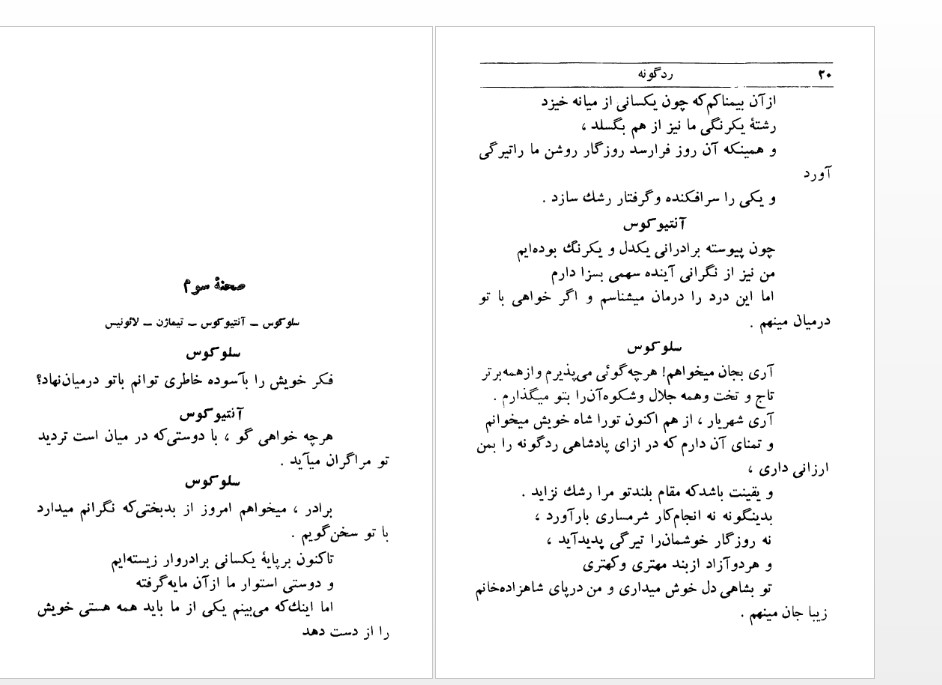 صحنهٔ سوم
سلوکوس ــ آنتیوکوس ــ تیماژن ــ لائونیس
سلوکوس
فکر خویش را بآسوده خاطری توانم باتو درمیان‌نهاد؟
آنتیوکوس
هرچه خواهی گو ، با دوستی‌که در میان است تردید
تو مراگران میآید .
سلوکوس
برادر ، میخواهم امروز از بدبختی‌که نگرانم میدارد
با تو سخن‌گویم .
تاکنون برپایهٔ یکسانی برادروار زیسته‌ایم
و دوستی استوار ما ازآن مایه‌گرفته
اما اینك‌که می‌بینم یکی از ما باید همه هستی خویش
را از دست دهد
۲۰ ردگونه
ازآن بیمناکم‌که چون یکسانی از میانه خیزد
رشتهٔ یکرنگی ما نیز از هم بگسلد ،
و همینکه آن روز فرارسد روزگار روشن ما راتیرگی
آورد
و یکی را سرافکنده وگرفتار رشك سازد .
آنتیوکوس
چون پیوسته برادرانی یکدل و یکرنگ بوده‌ایم
من نیز از نگرانی آینده سهمی بسزا دارم
اما این درد را درمان میشناسم و اگر خواهی با تو
درمیان مینهم .
سلوکوس
آری بجان میخواهم! هرچه‌گوئی می‌پذیرم وازهمه‌برتر
تاج و تخت وهمه جلال وشکوه‌آن‌را بتو میگذارم .
آری شهریار ، از هم اکنون تورا شاه خویش میخوانم
و تمنای آن دارم که در ازای پادشاهی ردگونه را بمن
ارزانی داری ،
و یقینت باشدکه مقام بلندتو مرا رشك نزاید .
بدینگونه نه انجام‌کار شرمساری بارآورد ،
نه روزگار خوشمان‌را تیرگی پدیدآید ،
و هردوآزاد ازبند مهتری وکهتری
تو بشاهی دل خوش میداری و من درپای شاهزاده‌خانم
زیبا جان مینهم .